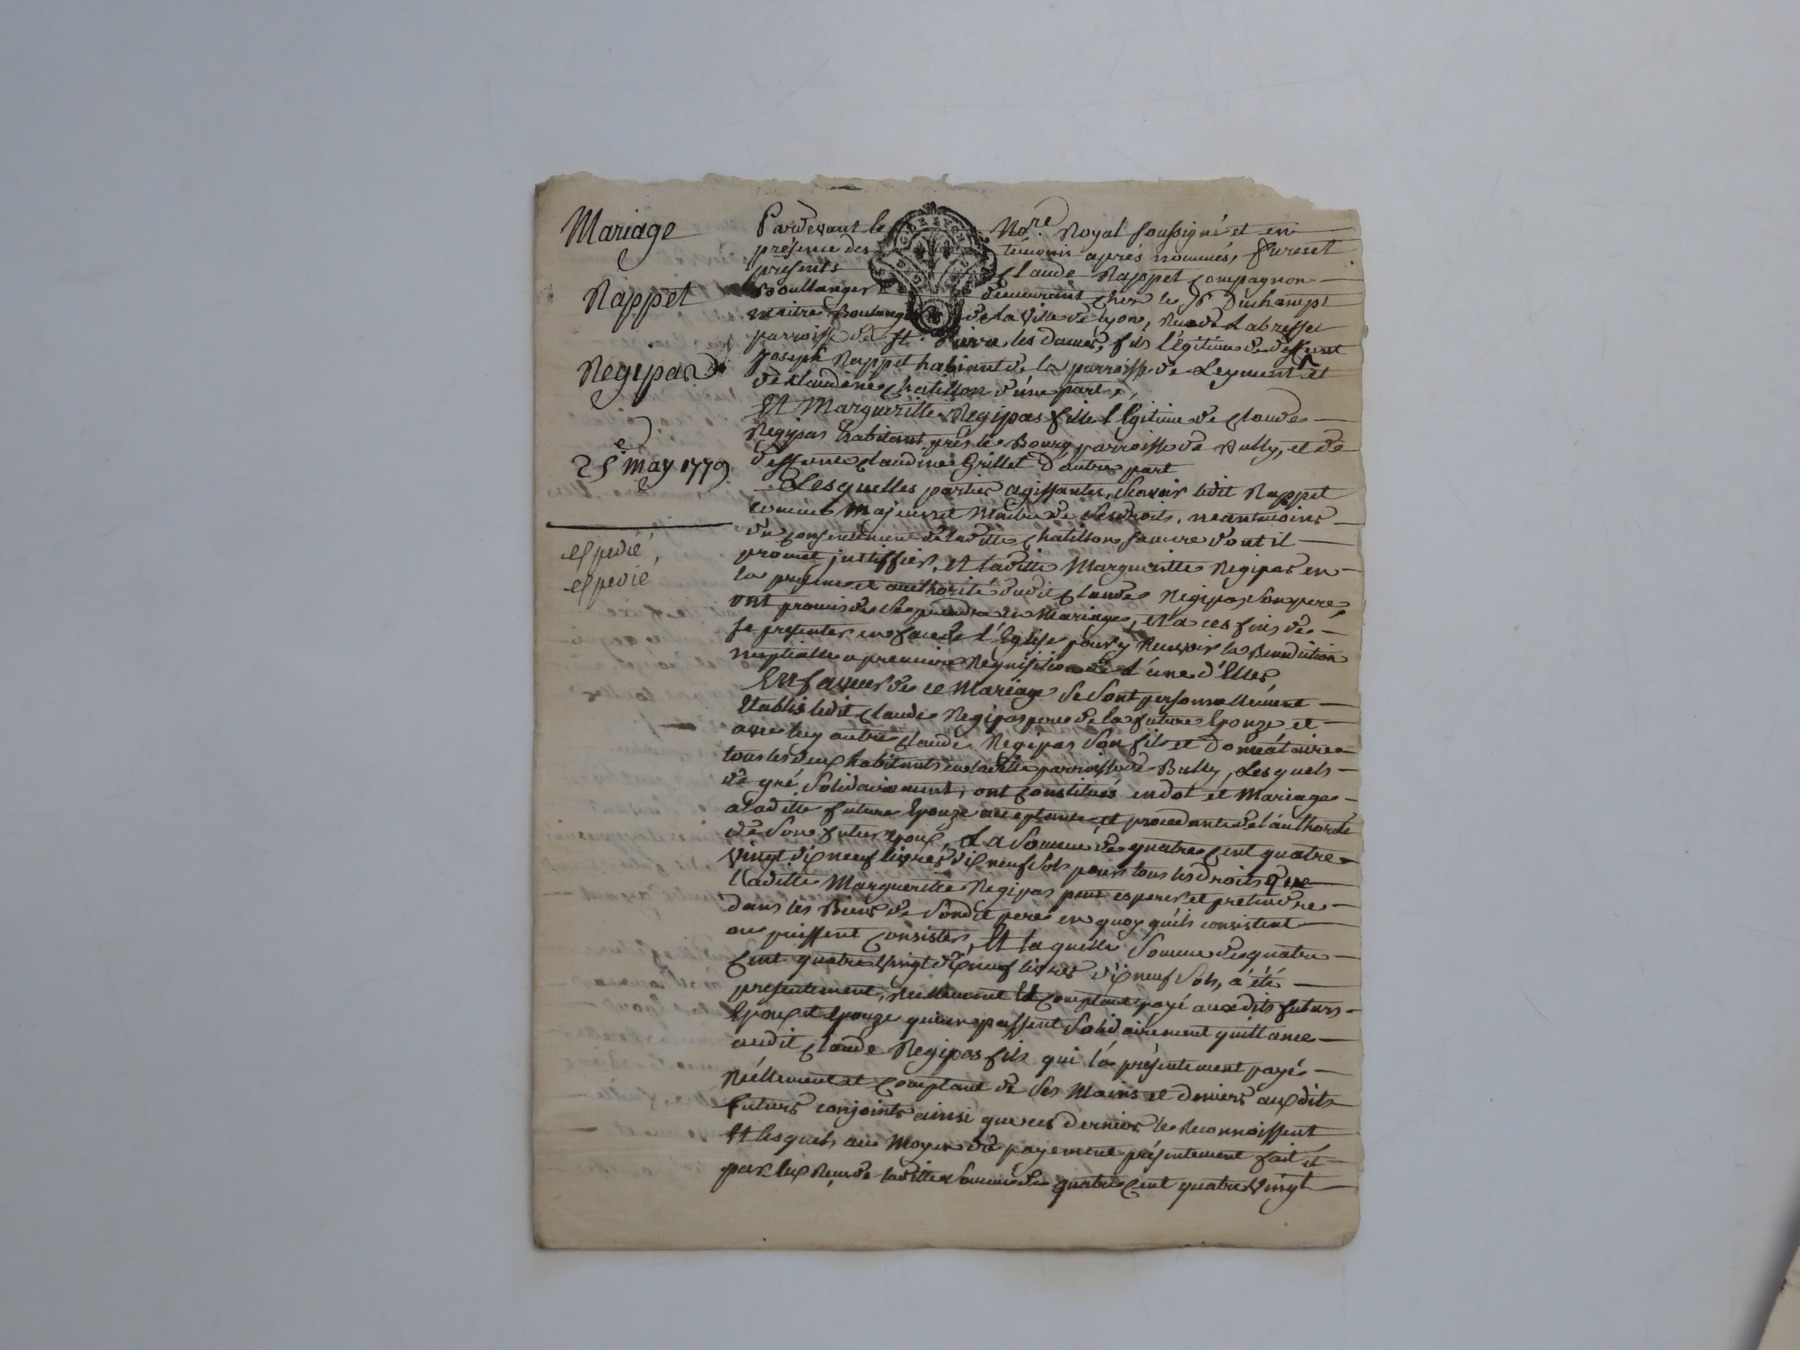 Mariage
Rappet
Negipas
25e may 1779
expedié,
expedié
Pardevant le Nore. Royal soussigné et en
présence des témoins après nommés, furent
presents Claude Rappet compagnon
Boullanger demeurant chez le Sr Duchampt
maitre Boulanger de la ville de Lyon, Rue de Labresse
parroisse de St. Pierre les dames, fils légitime de deffunt
Joseph Rappet habitant de la parroisse de Leyment et
de Claudine Chatillon d'une part,
Et Margueritte Negipas fille légitime de Claude
Negipas habitant près le Bourg parroisse de Bully, et de
deffunte Claudine Grillet d'autre part
Lesquelles parties agissantes, sçavoir ledit Rappet
comme Majeur et Maitre de ses droits, neantmoins
du consentement de laditte Chatillon sa mere dont il
promet justiffier, Et laditte Margueritte Negipas en
la presence et authorité dudit Claude Negipas son pere,
ont promis de se prendre en Mariage, et a ces fins de
se presenter en face de l'Eglise pour y Recevoir la Benediction
nuptialle a premiere Requisition de l'une d'Elles,
En faveur de ce Mariage se sont personnellement
Etablis ledit Claude Negipas pere de la future Epouze et
avec luy autre Claude Negipas son fils et Donnataire
tous les deux habitants en laditte parroisse de Bully, Lesquels
de gré, solidairement, ont constitués en dot et Mariage
a laditte future Epouze acceptante et procedante de l'authorité
de son futur epoux, La somme de quatre cent quatre
vingt dix neuf livres dix neuf sols pour tous les droits que
laditte Margueritte Negipas peut esperer et pretendre
dans les Biens de sondit pere en quoy qu'ils consistent
ou puissent consister, Et laquelle somme de quatre
cent quatre vingt dix neuf livres dix neuf sols, a été
presentement, réellement et comptant payé auxdits futurs
Epoux et Epouze qui en passent solidairement quittance
audit Claude Negipas fils qui l'a présentement payé
Réellement et comptant de ses Mains et deniers auxdits
futurs conjoints ainsi que ces derniers le Reconnoissent
Et lesquels au Moyen du payement présentement fait et
par Eux Reçu de laditte somme de quatre cent quatre vingt